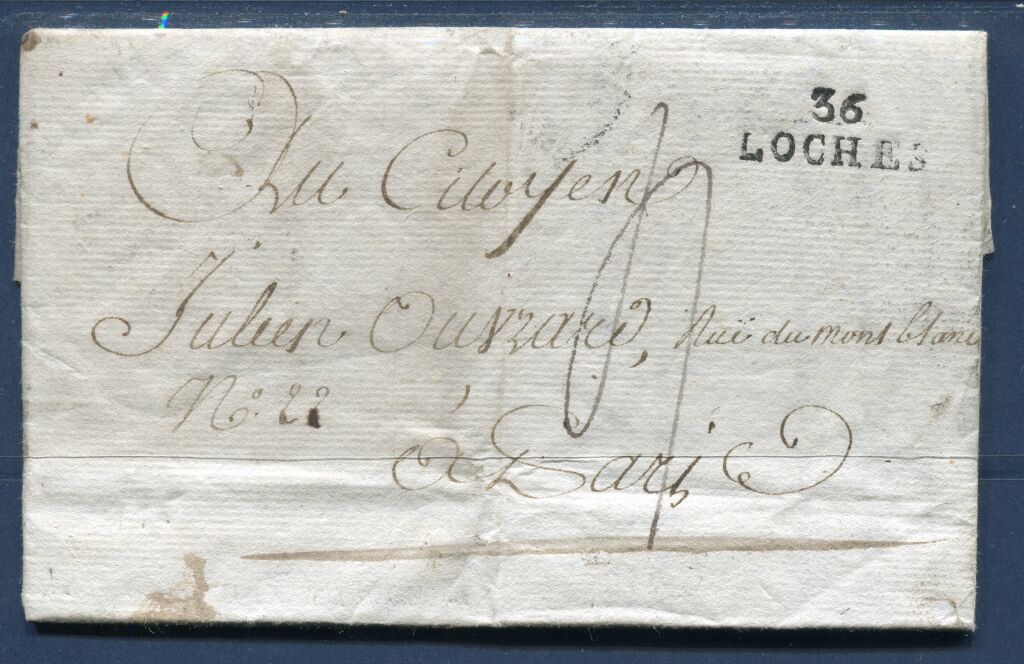 36
LOCHES
Au Citoyen
Julien Ouvrard, Ruë du mont blanc
No. 22
à Paris